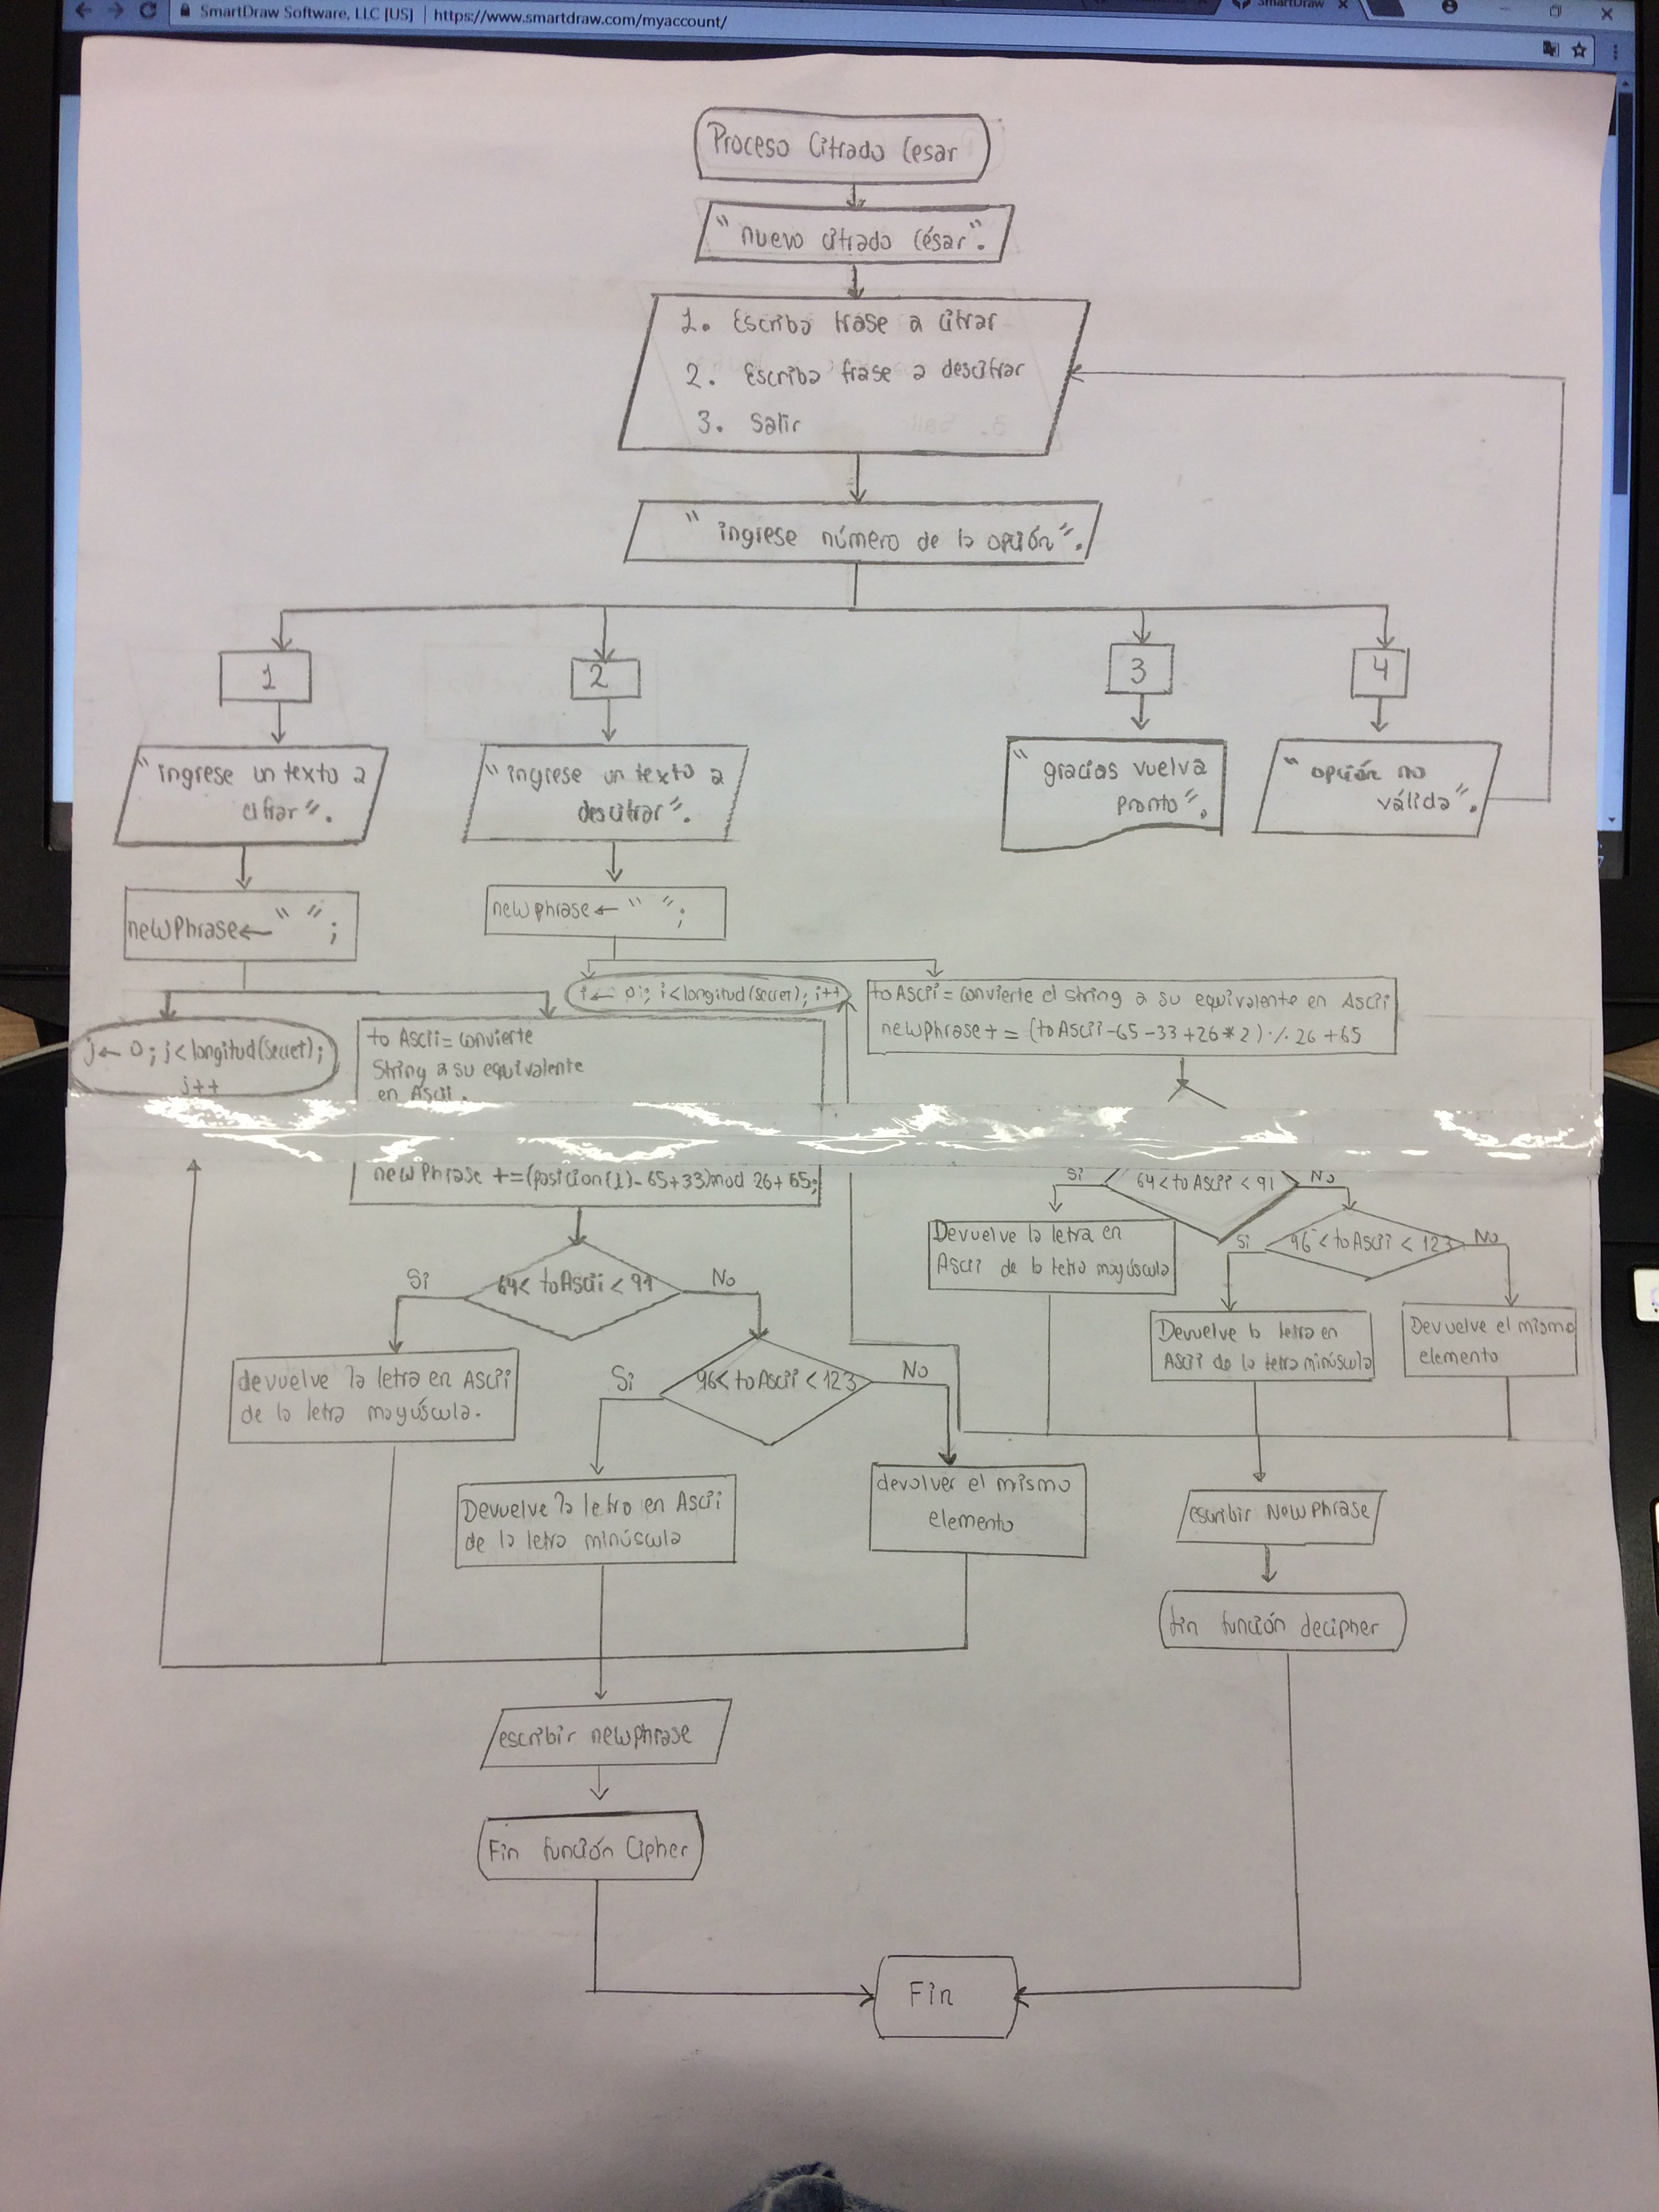 SmartDraw Software, LLC [US] | https://www.smartdraw.com/myaccount/
SmartDraw
Proceso Cifrado Cesar
"nuevo cifrado César".
1. Escriba frase a cifrar
2. Escriba frase a descifrar
3. Salir
"ingrese número de la opción".
1
2
3
4
"ingrese un texto a
cifrar".
"ingrese un texto a
descifrar".
"gracias vuelva
pronto".
"opción no
válida".
newPhrase← " ";
newphrase← " ";
i← 0; i<longitud(secret); i++
toAscii = convierte el string a su equivalente en Ascii
newphrase + = (toAscii-65-33+26*2) % 26 +65
j← 0; j<longitud(Secret);
j++
to Ascii= convierte
String a su equivalente
en Ascii.
newPhrase +=(posicion(1)-65+33)mod 26+65;
Si
64<toAscii<91
No
Devuelve la letra en
Ascii de la letra mayúscula
Si
96<toAscii<123
No
Devuelve la letra en
Ascii de la letra minúscula
Devuelve el mismo
elemento
Si
64< toAscii < 91
No
devuelve la letra en Ascii
de la letra mayúscula.
Si
96<toAscii<123
No
Devuelve la letra en Ascii
de la letra minúscula
devolver el mismo
elemento
escribir NewPhrase
fin función decipher
escribir newphrase
Fin función Cipher
Fin